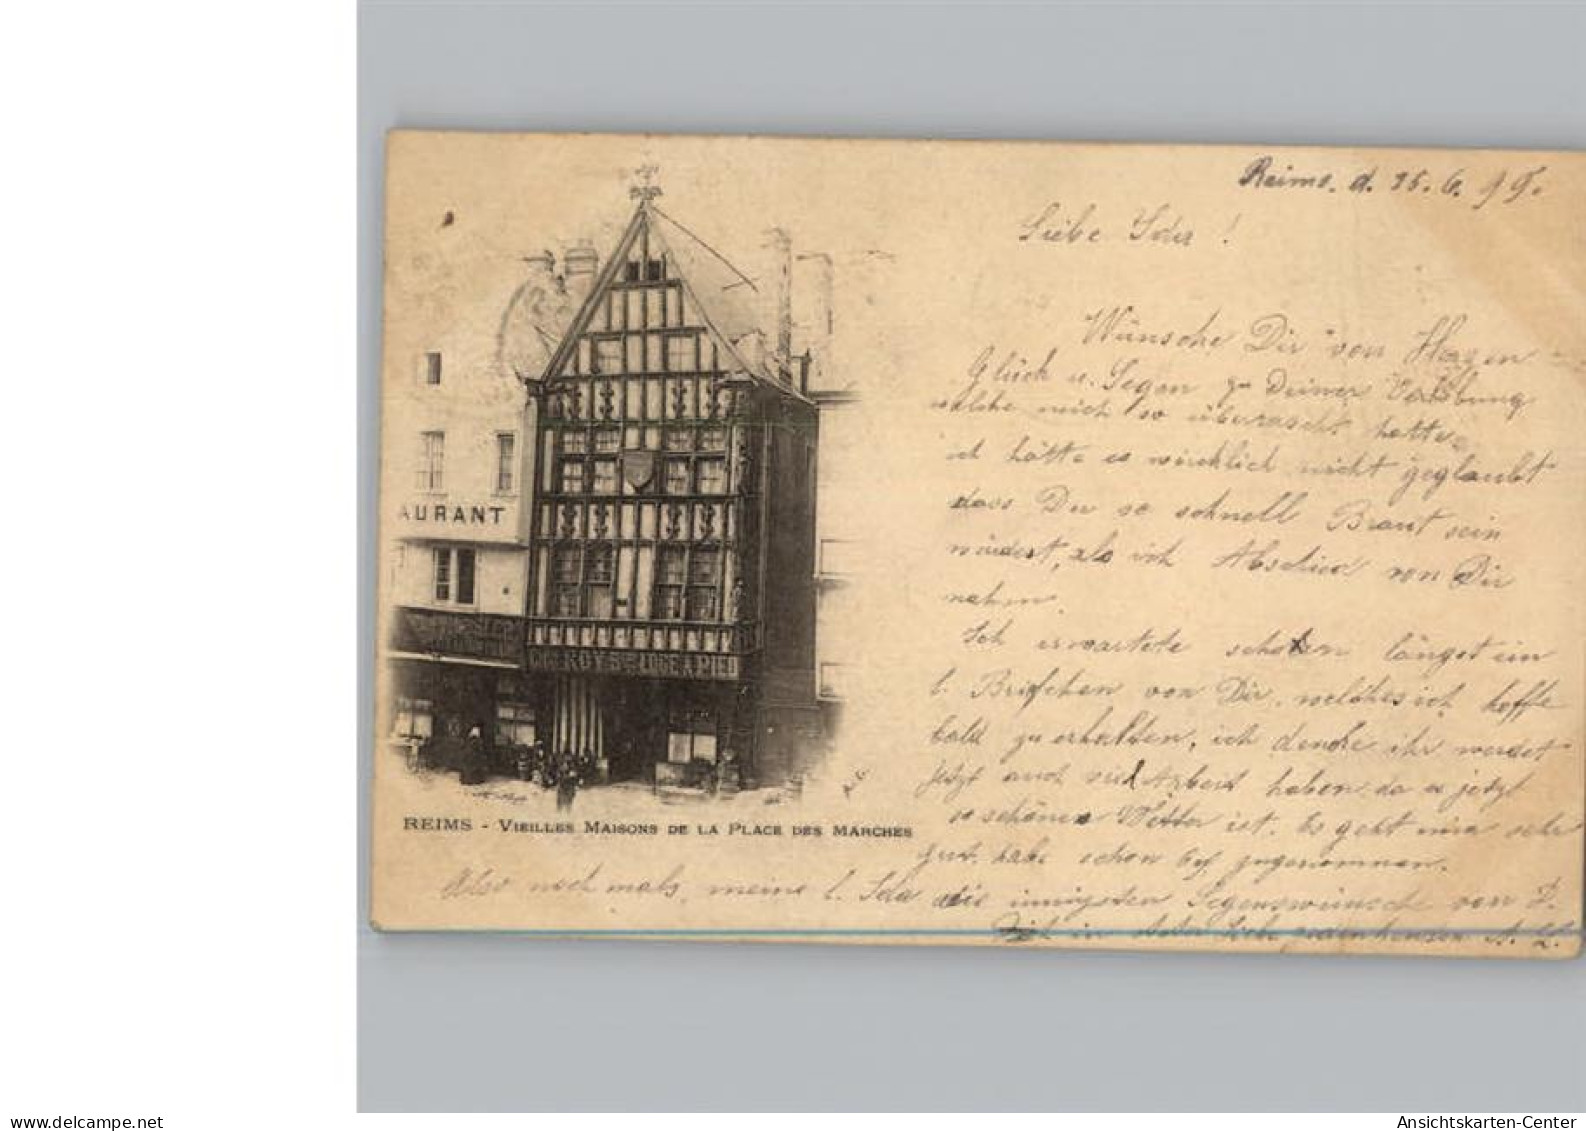 Reims. d. 15. 6. 99.
Liebe Ida !
Wünsche Dir von Herzen
Glück u. Segen zu Deiner Verlobung
welche mich so überrascht hatte
ich hätte es wirklich nicht geglaubt
dass Du so schnell Braut sein
würdest, als ich Abschied von Dir
nahm.
Ich erwartete schon längst ein
l. Briefchen von Dir, welches ich hoffe
bald zu erhalten, ich denke ihr werdet
jetzt auch viel Arbeit haben, da es jetzt
so schönes Wetter ist. Es geht mir sehr
gut, habe schon zugenommen.
Also noch mals, meine l. Ida die innigsten Segenswünsche von D.
in Liebe A. L.
AURANT
REIMS - VIEILLES MAISONS DE LA PLACE DES MARCHES
picclick-delcampe.net
Ansichtskarten-Center